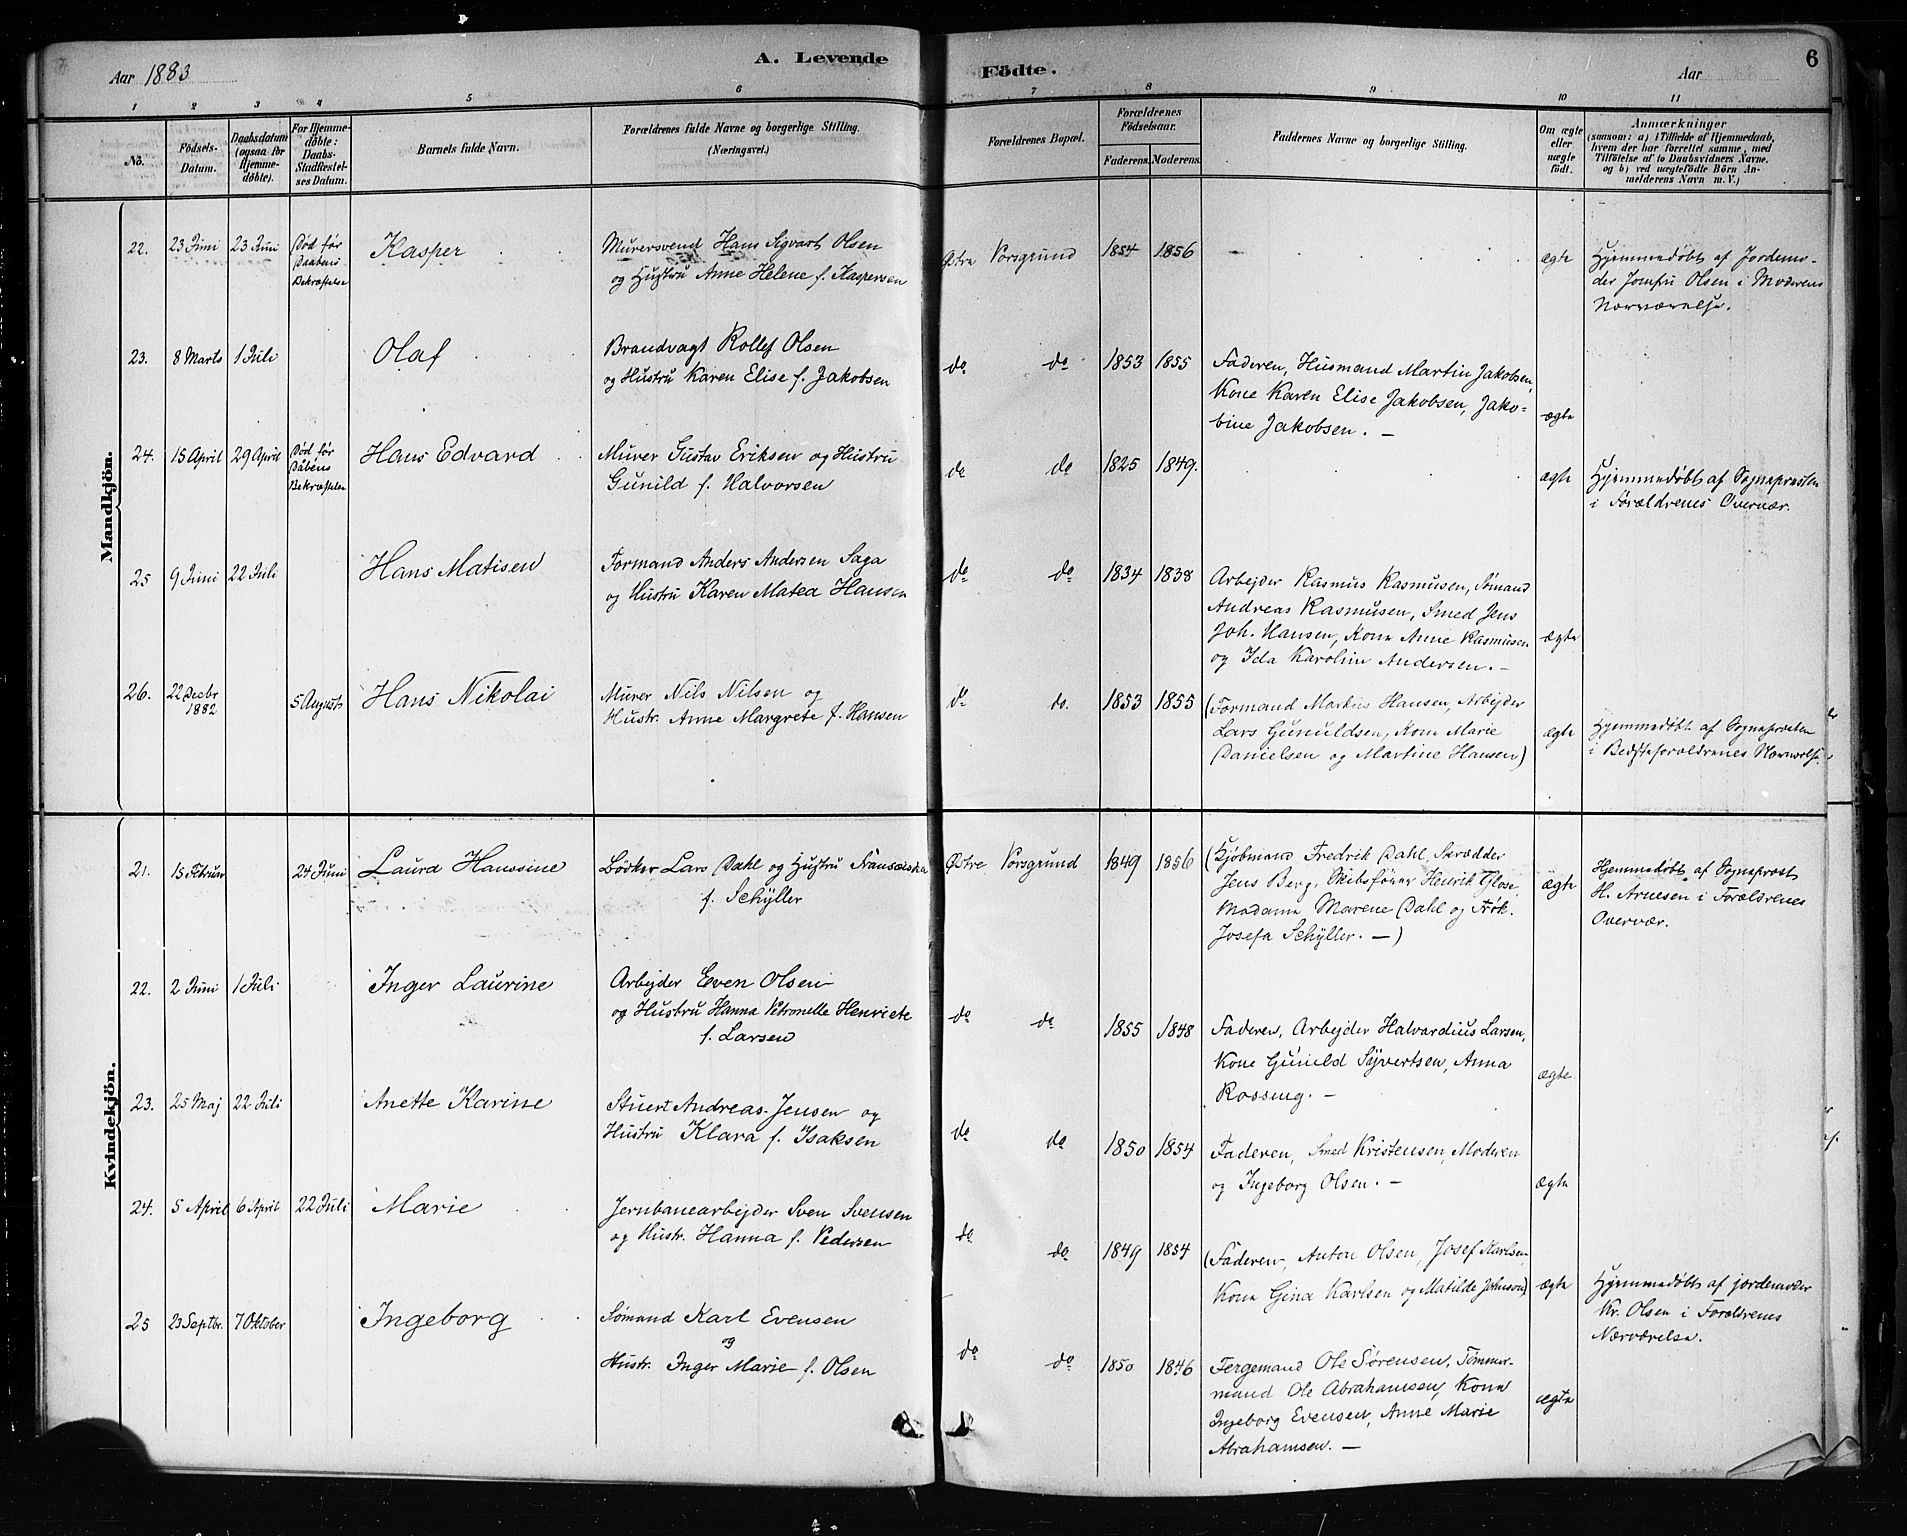 Aar 1883
A. Levende
Födte.
Aar
6
1 2 3 4 5 6 7 8 9 10 11
No.
Födsels-
Datum.
Daabsdatum
(ogsaa for
Hjemme-
döbte).
For Hjemme-
döbte:
Daabs-
Stadfæstel-
ses Datum.
Barnets fulde Navn.
Forældrenes fulde Navne og borgerlige Stilling.
(Næringsvei.)
Forældrenes Bopæl.
Forældrenes
Födselsaar.
Faderens. Moderens.
Faddernes Navne og borgerlige Stilling.
Om ægte
eller
uægte
født.
Anmærkninger
(saasom: a) i Tilfælde af Hjemmedaab,
hvem der har forrettet samme, med
Tilføielse af to Daabsvidners Navne.
og b) ved uægtefødte Börn An-
melderens Navn m. V.)
Mandkjön.
22. 23 Juni 23 Juni Død før
Daabens
Bekræftelse
Kasper
Murersvend Hans Sigvart Olsen
og Hustru Anne Helene f. Kaspersen
Østre Porsgrund 1854 1856
ægte
Hjemmedøbt af Jordemo-
der Jomfru Olsen i Moderens
Nærværelse.
23. 8 Marts 1 Juli
Olaf
Brandvagt Rollef Olsen
og Hustru Karen Elise f. Jakobsen
do do 1853 1855
Faderen, Husmand Martin Jakobsen,
Kone Karen Elise Jakobsen, Jako-
bine Jakobsen. —
ægte
24. 15 April 29 April Død før
Dåbens
Bekræftelse
Hans Edvard
Murer Gustav Eriksen og Hustru
Gunild f. Halvorsen
do do 1825 1849.
ægte
Hjemmedøbt af Sognepresten
i Forældrenes Overvær.
25 9 Juni 22 Juli
Hans Matisen
Formand Anders Andersen Saga
og Hustru Karen Matea Hansen
do do 1834 1838
Arbejder Rasmus Rasmusen, Sømand
Andreas Rasmusen, Smed Jens
Joh. Hansen, Kone Anne Rasmusen
og Ida Karoline Andersen. —
ægte
26. 22 Decbr
1882
5 Augusts
Hans Nikolai
Murer Nils Nilsen og
Hustr. Anne Margrete f. Hansen
do do. 1853 1855
(Formand Martin Hansen, Arbejder
Lars Gunuldsen, Kone Marie
Danielsen og Martine Hansen)
ægte
Hjemmedøbt af Sognepresten
i Bedsteforældrenes Nærværelse.
Kvindekjön.
21. 15 Februar 24 Juni
Laura Hanssine
Bødker Lars Dahl og Hustru Fransciska
f. Schÿller
Østre Porsgrund 1849 1856
(Kjøbmand Fredrik Dahl, Skrædder
Jens Berg, Skibsfører Henrik Close,
Madame Marene Dahl og Frøk.
Josefa Schÿller. —)
ægte
Hjemmedøbt af Sogneprest
H. Arnesen i Forældrenes
Overvær.
22. 2 Juni 1 Juli
Inger Laurine
Arbejder Even Olsen
og Hustru Hanna Petronelle Henriete
f. Larsen
do do 1855 1848
Faderen, Arbejder Halvardius Larsen,
Kone Gunild Syvertsen, Anna
Rossing. —
ægte.
23. 25 Maj 22 Juli
Anette Karine
Stuert Andreas Jensen og
Hustru Klara f. Isaksen
do do 1850 1854
Faderen, Smed Kristensen, Moderen
og Ingeborg Olsen. —
ægte
24. 5 April 6 April 22 Juli
Marie
Jernbanearbejder Sven Svensen
og Hustr. Hanna f. Pedersen
do do 1849 1854
(Faderen, Anton Olsen, Josef Karlsen
Kone Gina Karlsen og Matilde Johnsen)
ægte
Hjemmedøbt af jordemoder
Kr. Olsen i Forældrenes
Nærværelse.
25 23 Septbr. 7 Oktober
Ingeborg
Sømand Karl Evensen
og
Hustr. Inger Marie f. Olsen
do do 1850 1846
Fergemand Ole Sørensen, Tømmer-
mand Ole Abrahamsen, Kone
Ingeborg Evensen, Anne Marie
Abrahamsen. —
ægte